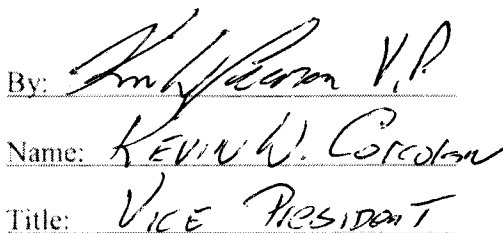 By: V.P.
Name: Kevin W. Corcoran
Title: Vice President